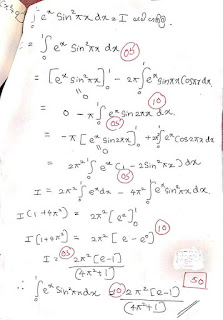 ∫₀¹ eˣ Sin²πx dx = I යැයි ගනිමු.
= ∫₀¹ eˣ Sin²πx dx (05)
= [eˣ Sin²πx]₀¹ - 2π ∫₀¹ eˣ Sinπx Cosπx dx
0 - π ∫₀¹ eˣ Sin2πx dx (10)
(05)
= -π [eˣ Sin2πx]₀¹ + 2π² ∫₀¹ eˣ Cos2πx dx
= 2π² ∫₀¹ eˣ (1 - 2Sin²πx) dx
(05)
I = 2π² ∫₀¹ eˣ dx - 4π² ∫₀¹ eˣ Sin²πx dx
I(1+4π²) = 2π² [eˣ]₀¹
I[1+4π²] = 2π² [e - e⁰] (10)
I = (05) 2π² [e-1] / (4π²+1)
∴ ∫₀¹ eˣ Sin²πx dx = (10) 2π² [e-1] / (4π²+1) 50